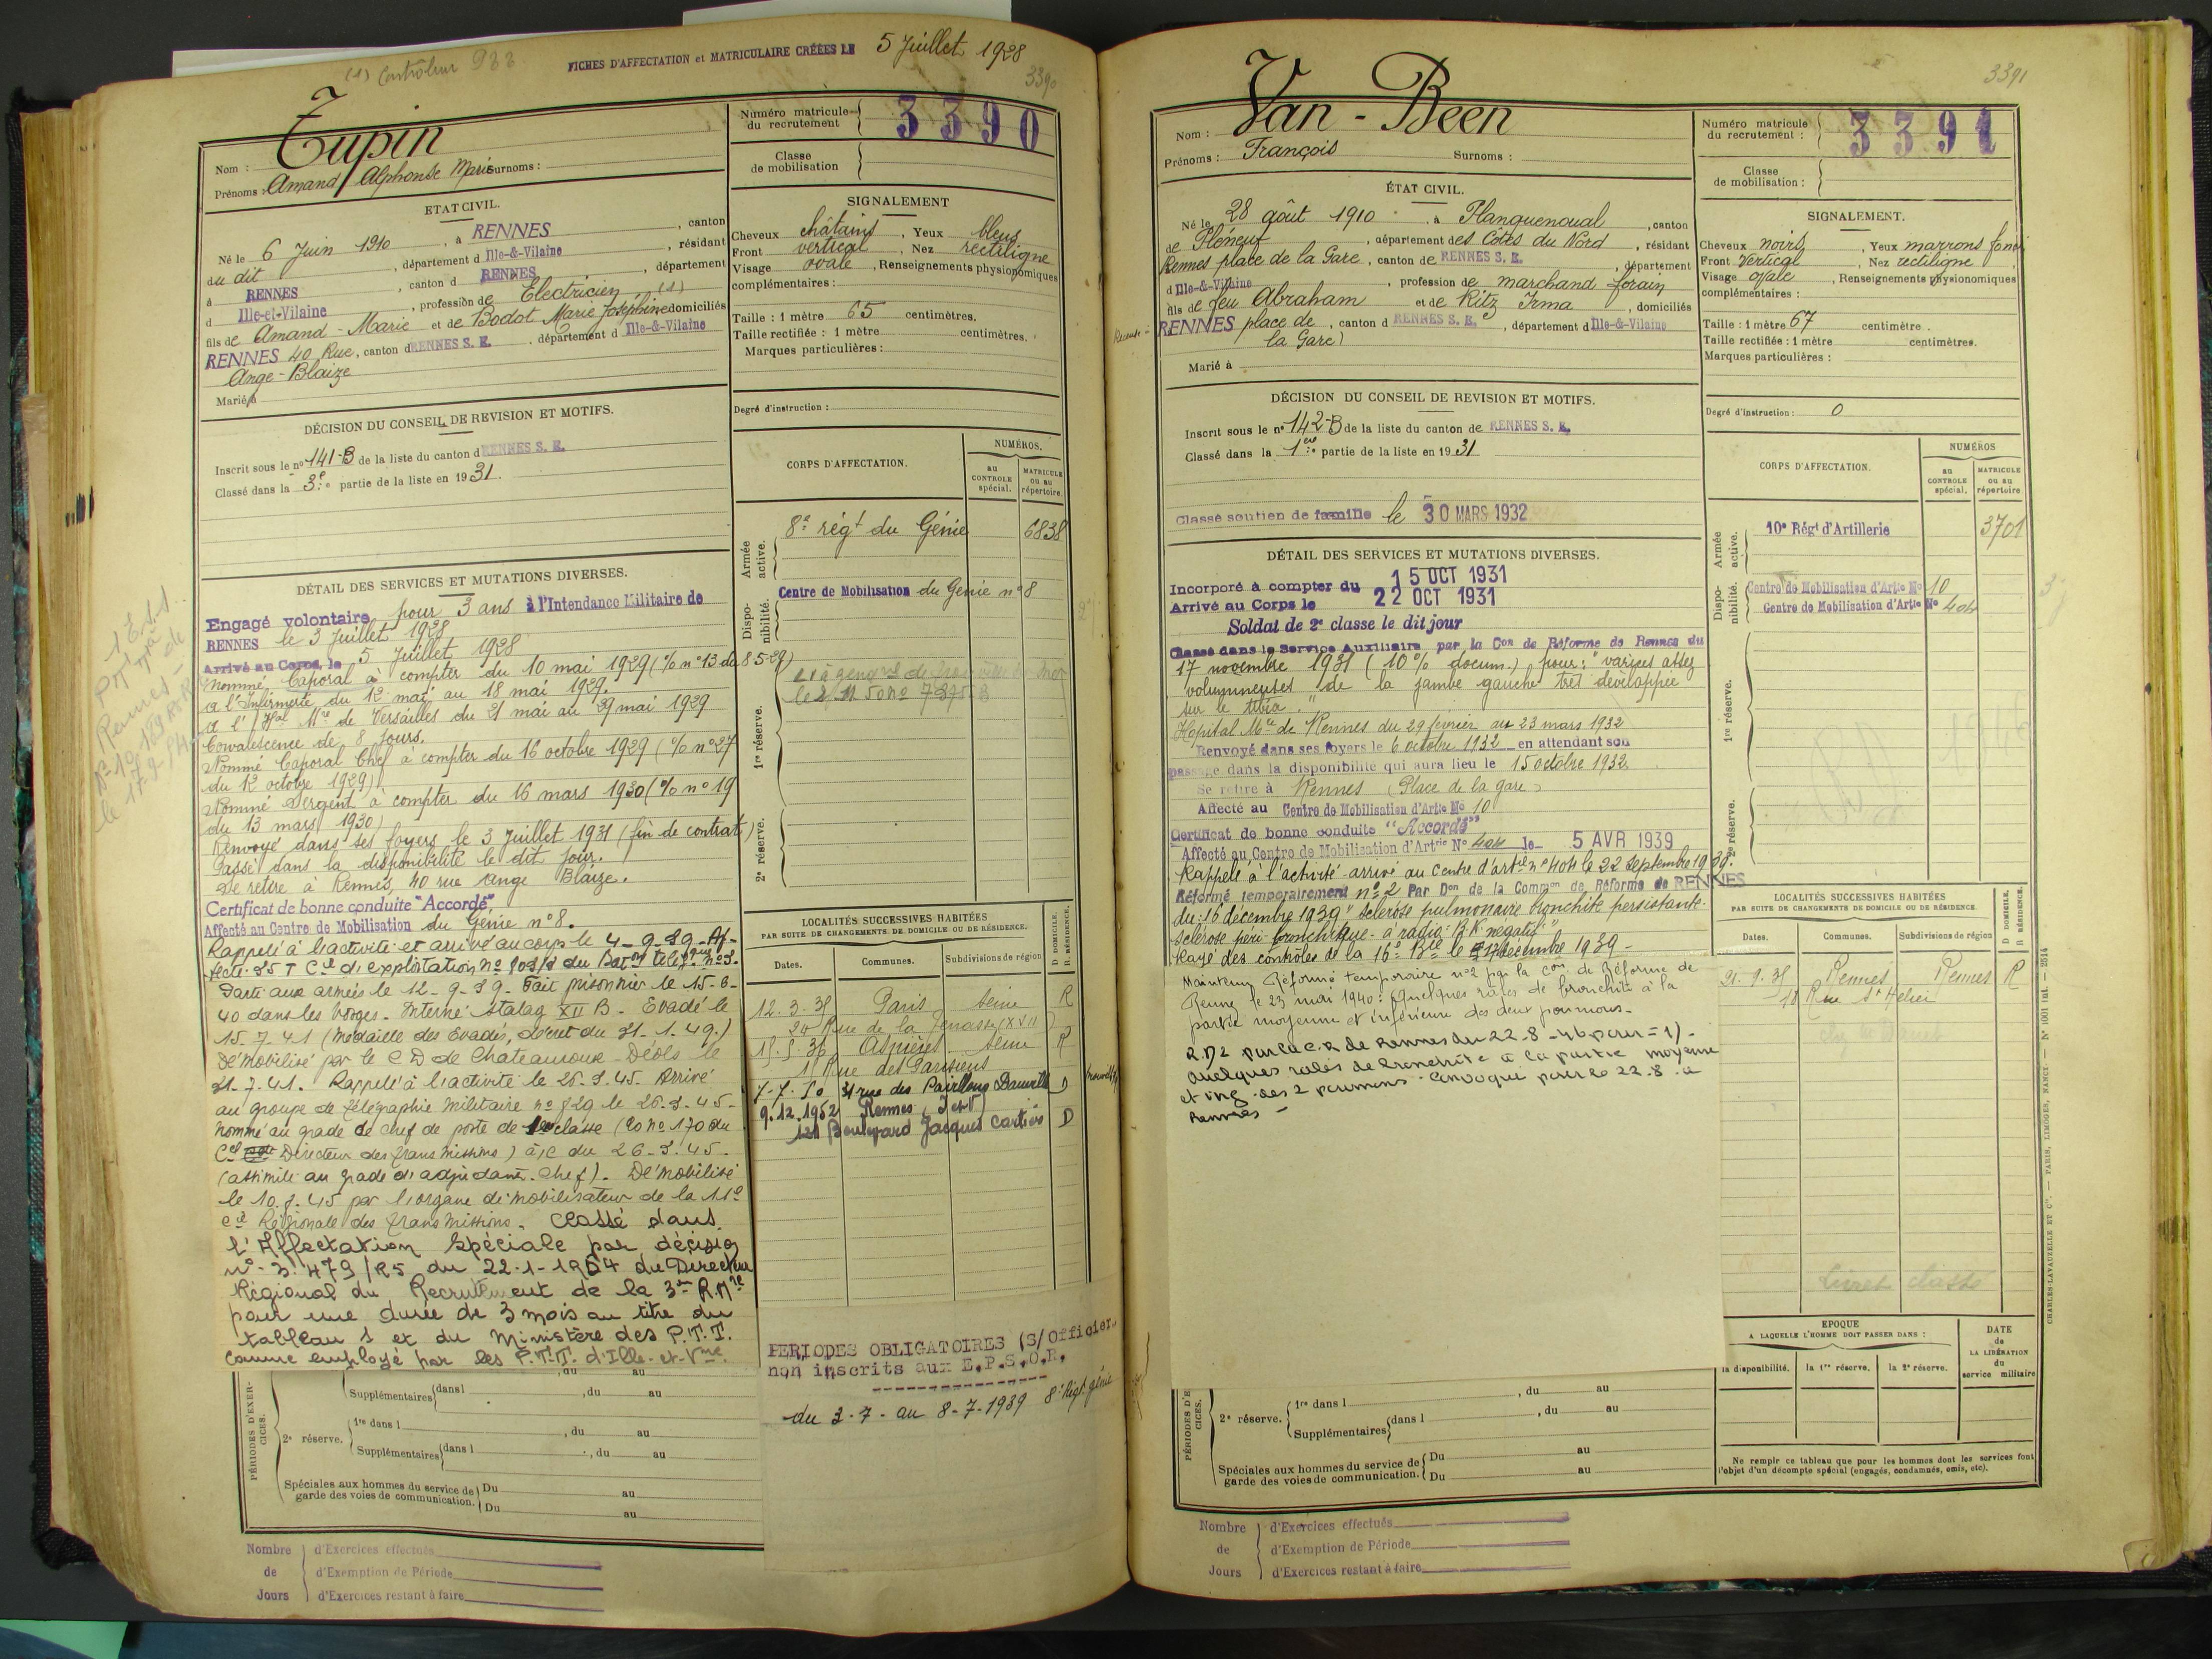 (1) Controleur 933
FICHES D'AFFECTATION et MATRICULAIRE CRÉÉES LE 5 Juillet 1928
3390
Nom : Tupin
Prénoms : Amand Alphonse Marie Surnoms :
Numéro matricule du recrutement 3390
Classe de mobilisation
ETAT CIVIL.
Né le 6 Juin 1910, à RENNES, canton
du dit, département d Ille-&-Vilaine, résidant
à RENNES, canton d RENNES, département
d Ille-et-Vilaine, profession de Electricien (1)
fils de Amand-Marie et de Bodot Marie Joséphine domiciliés
RENNES 40 Rue, canton d RENNES S. E., département d Ille-&-Vilaine
Ange-Blaize
Marié à
SIGNALEMENT
Cheveux châtains, Yeux bleus
Front vertical, Nez rectiligne
Visage ovale, Renseignements physionomiques
complémentaires :
Taille : 1 mètre 65 centimètres.
Taille rectifiée : 1 mètre centimètres.
Marques particulières :
DÉCISION DU CONSEIL DE REVISION ET MOTIFS.
Inscrit sous le nº 141-B de la liste du canton d RENNES S. E.
Classé dans la 3e partie de la liste en 1931.
Degré d'instruction :
CORPS D'AFFECTATION.
NUMÉROS.
au CONTROLE spécial.
MATRICULE ou au répertoire.
Armée active.
8e régt du Génie 6838
Dispo-nibilité.
Centre de Mobilisation du Génie nº 8
1re réserve.
2e réserve.
DÉTAIL DES SERVICES ET MUTATIONS DIVERSES.
Engagé volontaire pour 3 ans à l'Intendance Militaire de
RENNES le 3 Juillet 1928
Arrivé au Corps le 5 Juillet 1928
Nommé Caporal à compter du 10 mai 1929 (% nº 13 du 8-5-29)
à l'Infirmerie du 12 mai au 18 mai 1929.
à l'Hal Mre de Versailles du 21 mai au 29 mai 1929
Convalescence de 8 jours.
Nommé Caporal Chef à compter du 16 octobre 1929 (% nº 27
du 12 octobre 1929)
Nommé Sergent à compter du 16 mars 1930 (% nº 19
du 13 mars 1930)
Renvoyé dans ses foyers le 3 Juillet 1931 (fin de contrat)
Passé dans la disponibilité le dit jour.
Se retire à Rennes, 40 rue Ange Blaize.
Certificat de bonne conduite "Accordé"
Affecté au Centre de Mobilisation du Génie nº 8.
Rappelé à l'activité et arrivé au corps le 4-9-39. Af-
Parti aux armées le 12-9-39. Fait prisonnier le 15-6-
40 dans les Vosges. Interné Stalag XII B. Evadé le
15-7-41 (Médaille des Evadés, décret du 21.1.49.)
Démobilisé par le C D de Chateauroux-Déols le
21.7.41. Rappelé à l'activité le 26.3.45. Arrivé
au groupe de télégraphie militaire nº 829 le 26.3.45.
nommé au grade de chef de poste de 1re classe (DO nº 170 du
Cel Directeur des transmissions) à/c du 26-3.45.
(assimilé au grade d'adjudant-chef). Démobilisé
le 10.8.45 par l'organe démobilisateur de la 11e
Cie Régionale des transmissions. Classé dans
l'Affectation Spéciale par décision
nº 3.479/RS du 22-1-1964 du Directeur
Régional du Recrutement de la 3me R.Mre
pour une durée de 3 mois au titre du
tableau 1 et du Ministère des P.T.T.
comme employé par les P.T.T. d'Ille-et-Vne.
LOCALITÉS SUCCESSIVES HABITÉES
PAR SUITE DE CHANGEMENTS DE DOMICILE OU DE RÉSIDENCE.
Dates. Communes. Subdivisions de région D DOMICILE. R RÉSIDENCE.
12.3.35 Paris Seine R
24 Rue de la
15.5.36 Asnières Seine R
15 Rue des Parisiens
7-7-50 D
9.12.1952 Rennes (I et V)
121 Boulevard Jacques Cartier D
PERIODES OBLIGATOIRES (S/Officiers
non inscrits aux E.P.S.O.R.
du 2-7- au 8-7-1939 8e Régt génie
PÉRIODES D'EXER-CICES.
Supplémentaires dans l , du au
2e réserve. 1re dans l , du au
Supplémentaires dans l , du au
Spéciales aux hommes du service de garde des voies de communication. Du au
Du au
Nombre de Jours
d'Exercices effectués
d'Exemption de Période
d'Exercices restant à faire
3391
Nom : Van-Been
Prénoms : François Surnoms :
Numéro matricule du recrutement : 3391
Classe de mobilisation :
ÉTAT CIVIL.
Né le 28 août 1910, à Planguenoual, canton
de Pléneuf, département des Côtes du Nord, résidant
Rennes place de la Gare, canton de RENNES S. E., département
d Ille-&-Vilaine, profession de marchand forain
fils de feu Abraham et de Ritz Irma, domiciliés
RENNES place de, canton d RENNES S. E., département d Ille-&-Vilaine
la Gare)
Marié à
SIGNALEMENT.
Cheveux noirs, Yeux marrons foncés
Front Vertical, Nez rectiligne
Visage ovale, Renseignements physionomiques
complémentaires :
Taille : 1 mètre 67 centimètre.
Taille rectifiée : 1 mètre centimètres.
Marques particulières :
DÉCISION DU CONSEIL DE REVISION ET MOTIFS.
Inscrit sous le nº 142-B de la liste du canton de RENNES S. E.
Classé dans la 1ere partie de la liste en 1931
Classé soutien de famille le 30 MARS 1932
Degré d'instruction : 0
CORPS D'AFFECTATION.
NUMÉROS
au CONTROLE spécial.
MATRICULE ou au répertoire
Armée active.
10e Régt d'Artillerie 3701
Dispo-nibilité.
Centre de Mobilisation d'Artie Nº 10
Centre de Mobilisation d'Artie Nº 404
1re réserve.
2e réserve.
DÉTAIL DES SERVICES ET MUTATIONS DIVERSES.
Incorporé à compter du 15 OCT 1931
Arrivé au Corps le 22 OCT 1931
Soldat de 2e classe le dit jour
Classé dans le Service Auxiliaire par la Con de Réforme de Rennes du
17 novembre 1931 (10% docum.) pour : "varices assez
volumineuses de la jambe gauche très développée
sur le tibia."
Hôpital Mre de Rennes du 29 février au 23 mars 1932
Renvoyé dans ses foyers le 6 octobre 1932 en attendant son
passage dans la disponibilité qui aura lieu le 15 octobre 1932
Se retire à Rennes (Place de la gare)
Affecté au Centre de Mobilisation d'Artie Nº 10
Certificat de bonne conduite "Accordé"
Affecté au Centre de Mobilisation d'Artrie Nº 404 le 5 AVR 1939
Rappelé à l'activité arrivé au Centre d'artie nº 404 le 22 septembre 1939.
Réformé temporairement nº 2 Par Don de la Common de Réforme de RENNES
du : 16 décembre 1939 "sclérose pulmonaire bronchite persistante.
Sclérose péri-bronchique - à radio : B.K. négatif"
Rayé des contrôles de la 16e Bie le 17 décembre 1939
Maintenu Réformé temporaire nº 2 par la Con de Réforme de
Rennes le 23 mai 1940 : "Quelques râles de bronchite à la
partie moyenne et inférieure des deux poumons.
R.D2 par la C.R de Rennes du 22-8-46 pour = 1) -
Quelques rales de bronchite à la partie moyenne
et inf. des 2 poumons. Convoqué pour le 22-8 à
Rennes -
LOCALITÉS SUCCESSIVES HABITÉES
PAR SUITE DE CHANGEMENTS DE DOMICILE OU DE RÉSIDENCE.
Dates. Communes. Subdivisions de région D DOMICILE. R RÉSIDENCE.
21.9.35 Rennes Rennes R
18 Rue St Hélier
Livret classé
EPOQUE
A LAQUELLE L'HOMME DOIT PASSER DANS :
la disponibilité. la 1re réserve. la 2e réserve.
DATE de LA LIBÉRATION du service militaire
Ne remplir ce tableau que pour les hommes dont les services font
l'objet d'un décompte spécial (engagés, condamnés, omis, etc).
2e réserve. 1re dans l , du au
Supplémentaires dans l , du au
Spéciales aux hommes du service de garde des voies de communication. Du au
Du au
Nombre de Jours
d'Exercices effectués
d'Exemption de Période
d'Exercices restant à faire
CHARLES-LAVAUZELLE ET Cie. — PARIS, LIMOGES, NANCY